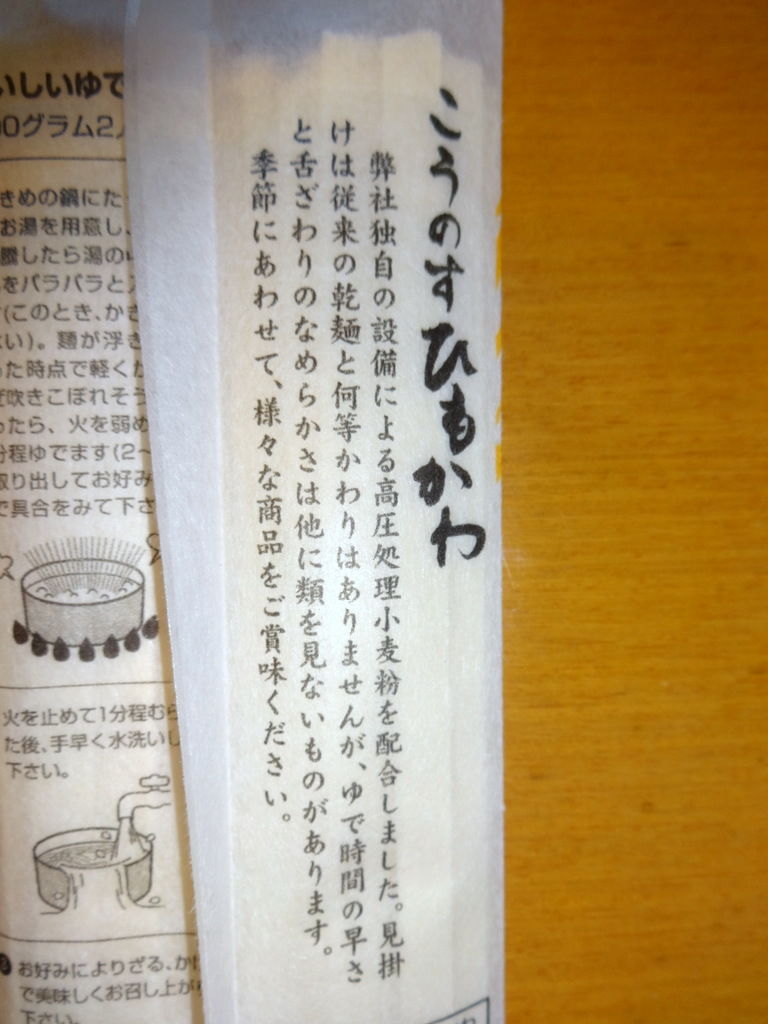 こうのすひもかわ
弊社独自の設備による高圧処理小麦粉を配合しました。見掛
けは従来の乾麺と何等かわりはありませんが、ゆで時間の早さ
と舌ざわりのなめらかさは他に類を見ないものがあります。
季節にあわせて、様々な商品をご賞味ください。
いしいゆで
0グラム2人
きめの鍋にた
お湯を用意し、
騰したら湯の
をバラバラと入
(このとき、かき
い)。麺が浮き
た時点で軽くか
吹きこぼれそう
ったら、火を弱め
分程ゆでます(2〜
取り出してお好み
で具合をみて下さ
火を止めて1分程むら
た後、手早く水洗いし
下さい。
お好みによりざる、かけ
で美味しくお召し上が
下さい。